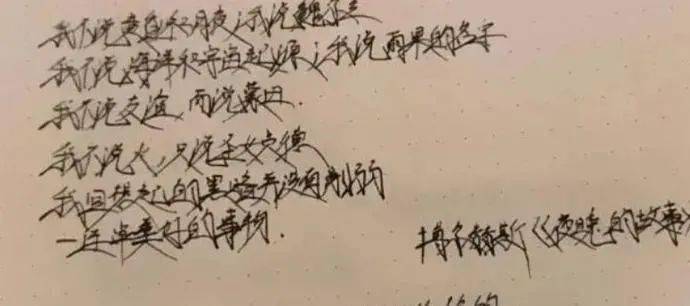 我不说黄昏和月夜；我说魏尔兰
我不说海洋和宇宙起源；我说雨果的名字
我不说友谊，而说蒙田.
我不说火，只说圣女贞德
我回想起的黑暗并没有削弱
一连串美好的事物.
博尔赫斯《夜晚的故事》